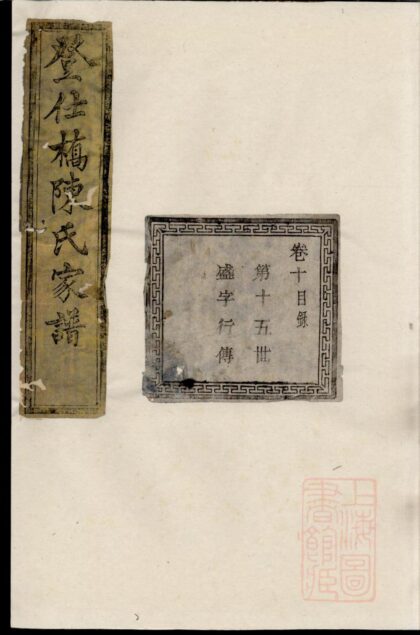 登仕橋陳氏家譜
卷十目錄
第十五世
盛字行傳
上海圖
書館藏